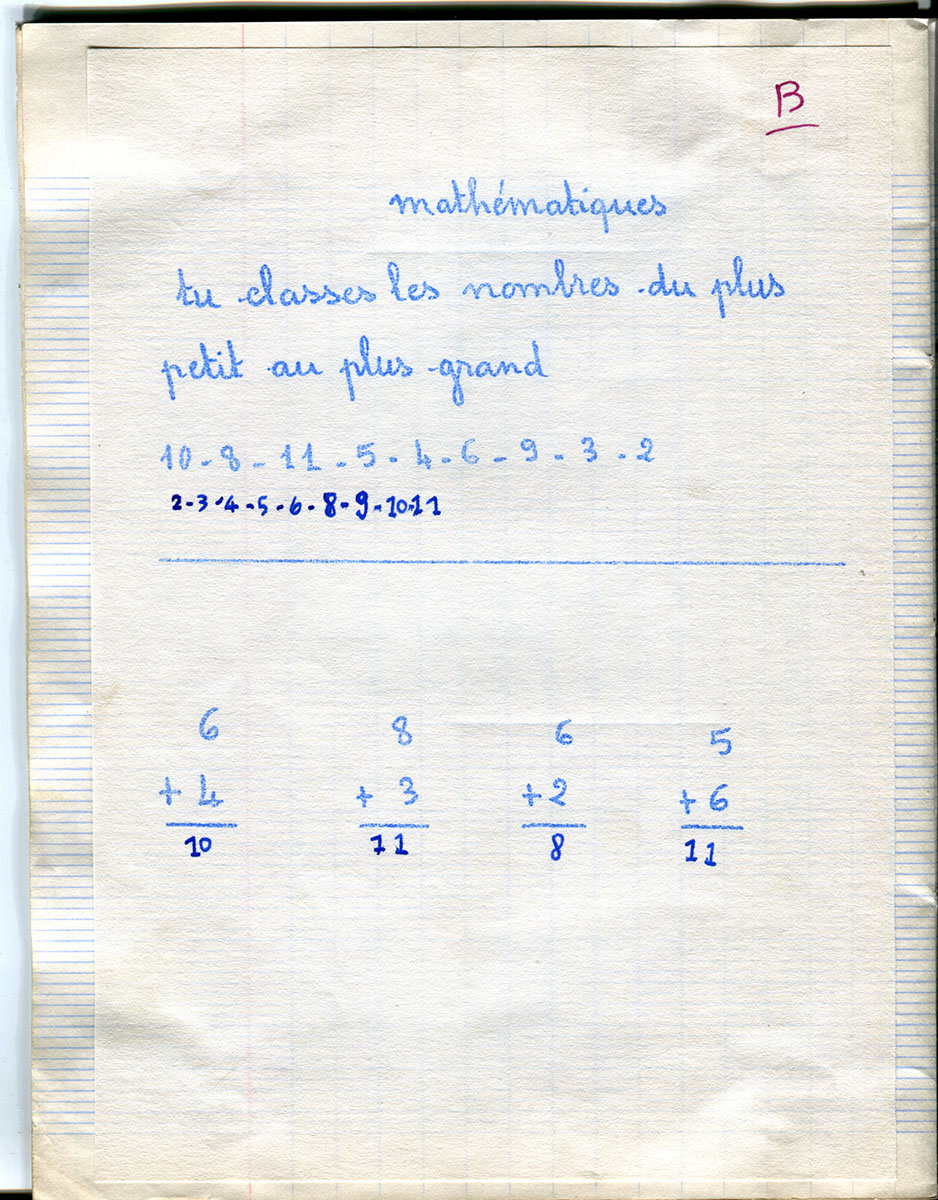 B
mathématiques
tu classes les nombres du plus
petit au plus grand
10 - 8 - 11 - 5 - 4 - 6 - 9 - 3 - 2
2 - 3 - 4 - 5 - 6 - 8 - 9 - 10 - 11
6 8 6 5
+ 4 + 3 + 2 + 6
10 11 8 11